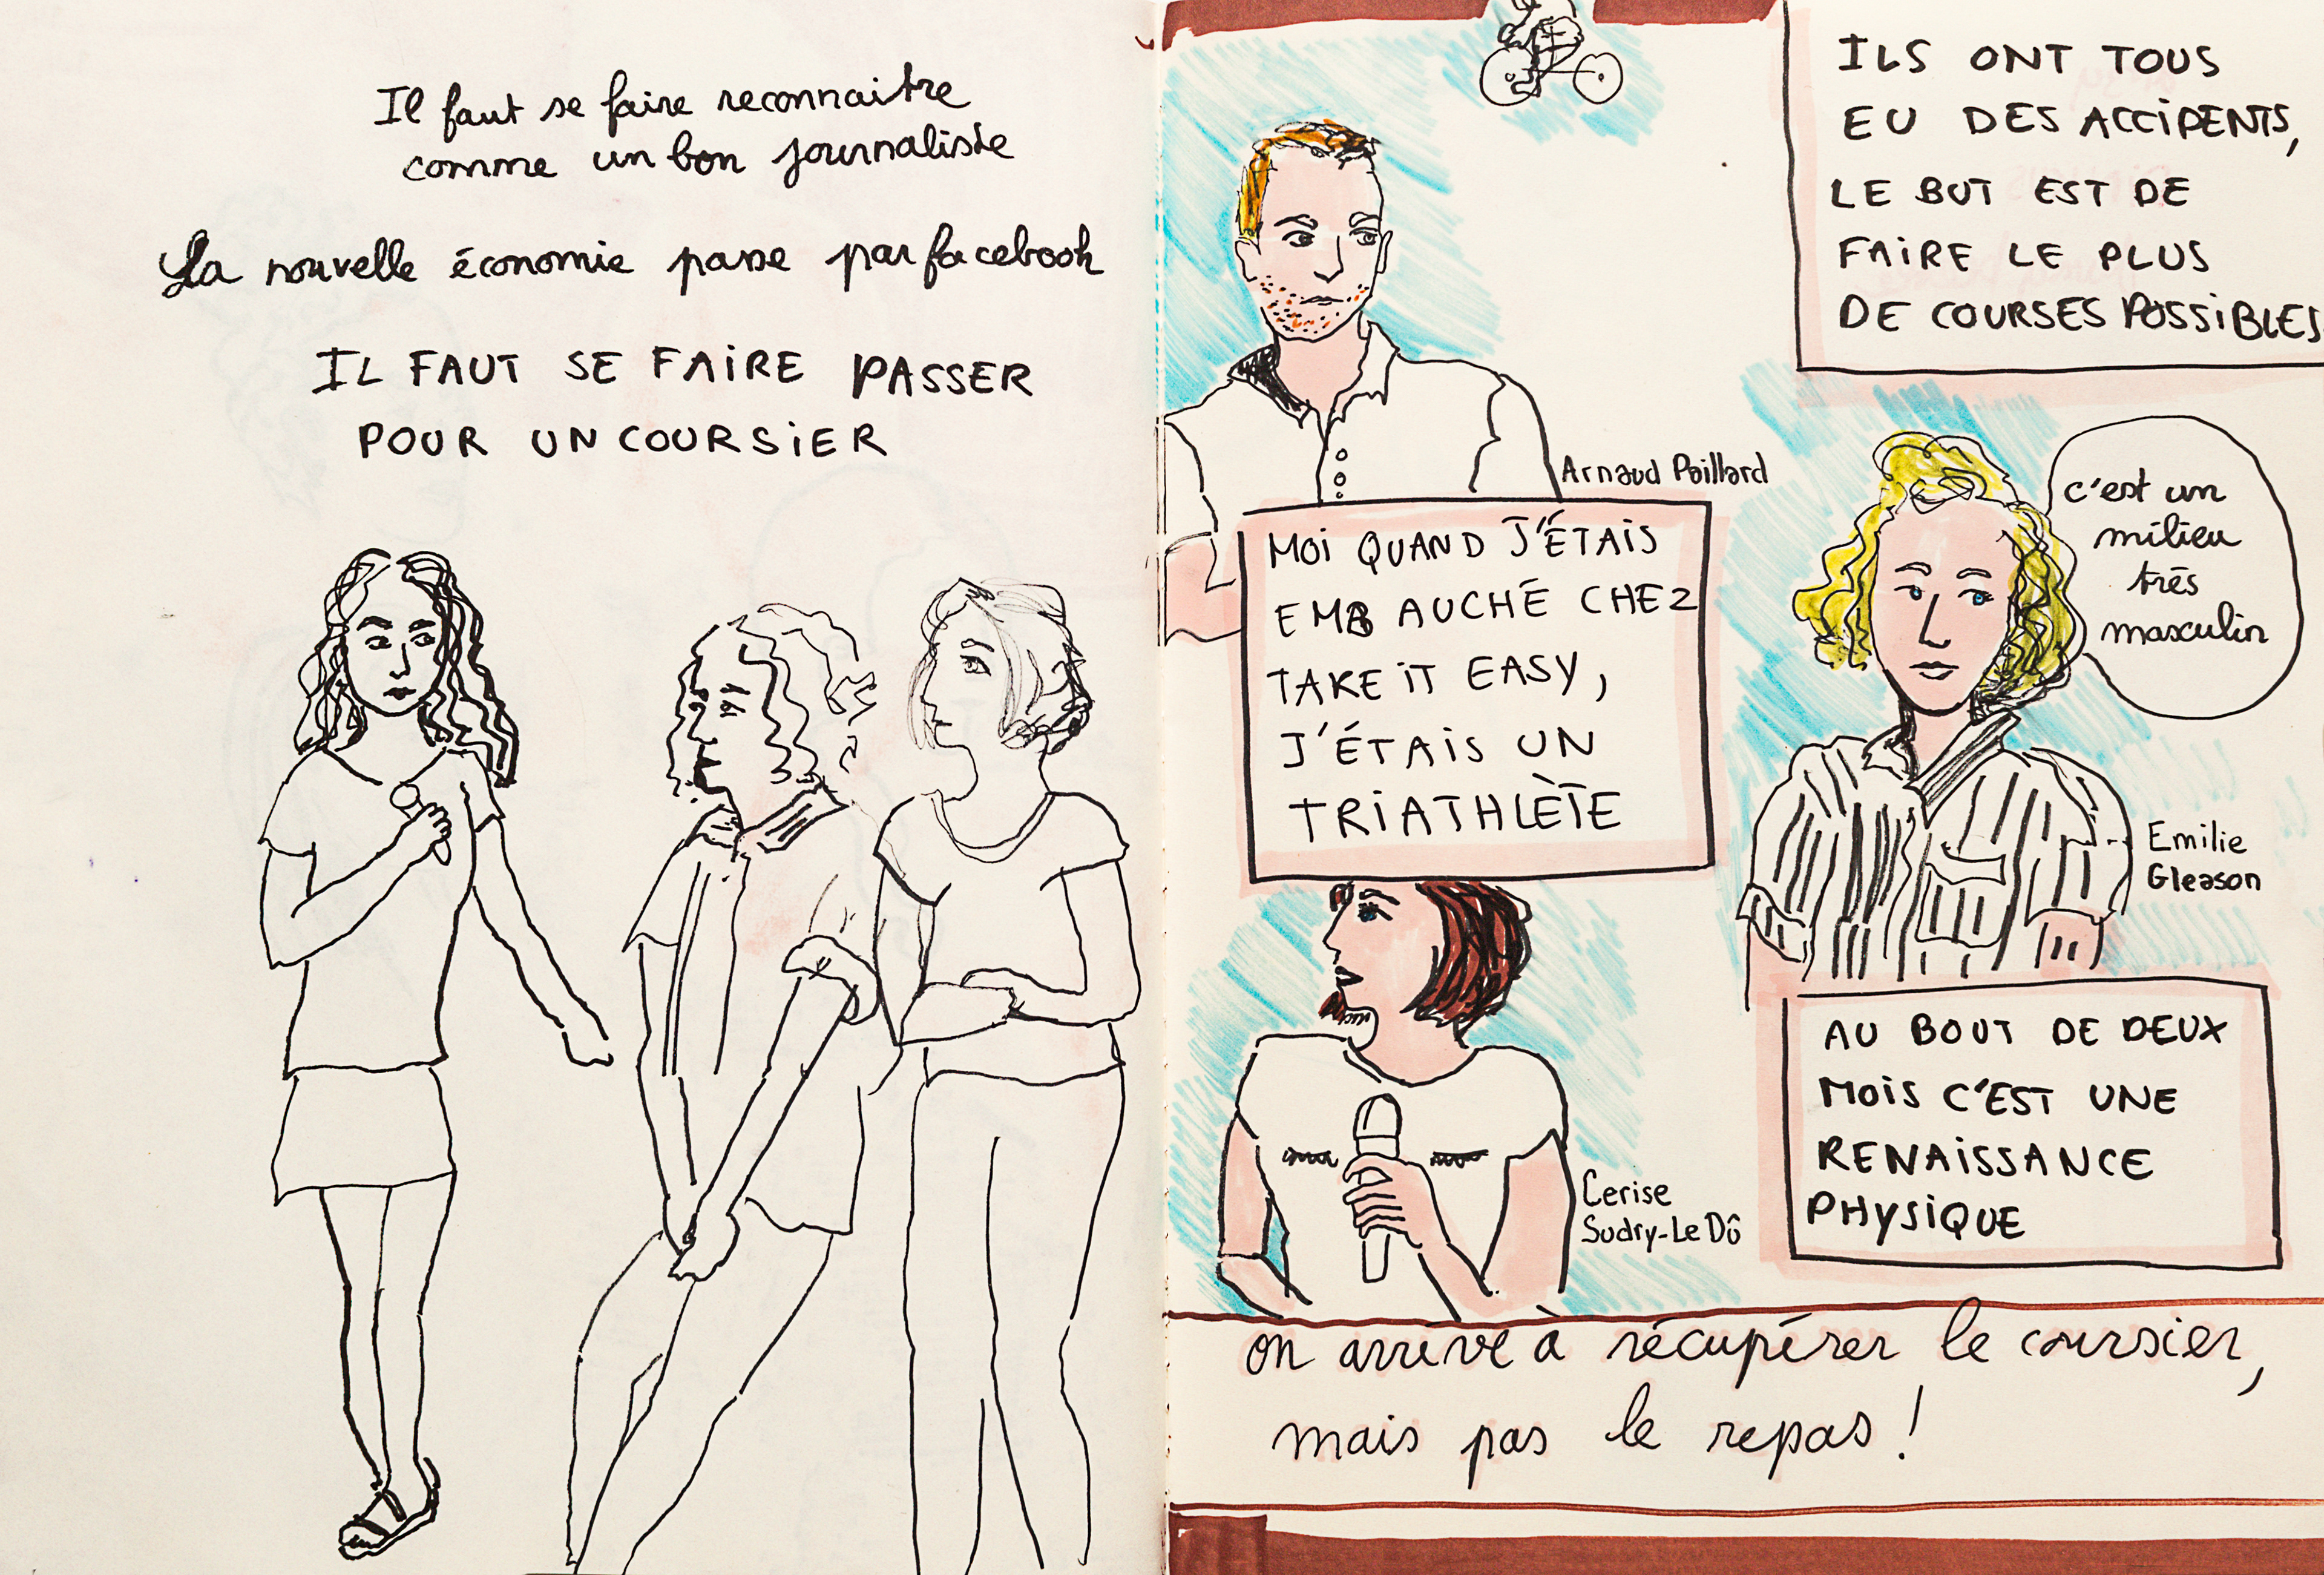 Il faut se faire reconnaitre
comme un bon journaliste
La nouvelle économie passe par facebook
IL FAUT SE FAIRE PASSER
POUR UN COURSIER
ILS ONT TOUS
EU DES ACCIDENTS,
LE BUT EST DE
FAIRE LE PLUS
DE COURSES POSSIBLES
Arnaud Paillard
MOI QUAND J'ÉTAIS
EMBAUCHÉ CHEZ
TAKE IT EASY,
J'ÉTAIS UN
TRIATHLÈTE
c'est un
milieu
très
masculin
Emilie
Gleason
Cerise
Sudry-Le Dû
AU BOUT DE DEUX
MOIS C'EST UNE
RENAISSANCE
PHYSIQUE
on arrive à récupérer le coursier,
mais pas le repas !